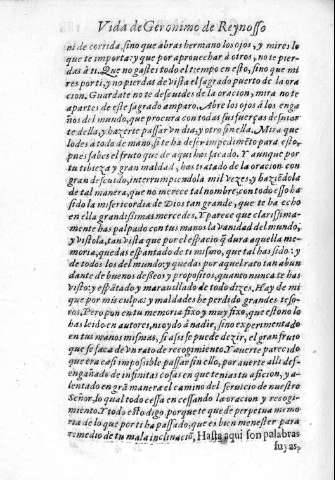 Vida de Geronimo de Reynosso
ni de corrida, sino que abras hermano los ojos, y mires lo
que te importa: y que por aprouechar à otros, no te pier-
das à ti. Que no gastes todo el tiempo en esto, sino que mi
res por ti, y no pierdas de vista el sagrado puerto de la ora
cion. Guardate no te descuides de la oracion, mira no te
apartes de este sagrado amparo. Abre los ojos à los enga
ños del mundo, que procura con todas sus fuerças desuiar
te della, y hazerte passar vn dia, y otro sin ella. Mira que
lo des à todo de mano, si te ha de ser impedimẽto para esto,
pues sabes el fruto que de aqui has sacado. Y aunque por
tu tibieza y gran maldad, has tratado de la oracion con
gran descuido, interrumpiendola mil vezes, y haziẽdola
de tal manera, que no merece tal nombre, con todo esso ha
sido la misericordia de Dios tan grande, que te ha echo
en ella grandissimas mercedes. Y parece que clarissima-
mente has palpado con tus manos la vanidad del mundo,
y vistola, tan vista que por el espacio q̃ dura aquella me
moria, quedas espantado de ti mismo, que tal has sido: y
de todos los del mundo: y quedas por aquel rato tan abun
dante de buenos desseos y propositos, quanto nunca te has
visto: y espãtado y marauillado de todo dizes, Hay de mi
que por mis culpas y maldades he perdido grandes teso-
ros. Pero pon en tu memoria fixo y muy fixo, que esto no lo
has leido en autores, ni oydo à nadie, sino experimentado
en tus manos mismas, si assi se puede dezir, el gran fruto
que se saca de vn rato de recogimiento. Y auerte parecido
que era casi impossible passar sin ello, por auerte alli des-
engañado de infinitas cosas en que tenias tu aficion, y a-
lentado en grã manera el camino del seruicio de nuestro
Señor, lo qual todo cessa en cessando la oracion y recogi-
miento. Y todo esto digo, porque te quede perpetua memo
ria de lo que por ti ha passado, que es bien menester para
remedio de tu mala inclinaciõ. Hasta aqui son palabras
suyas,